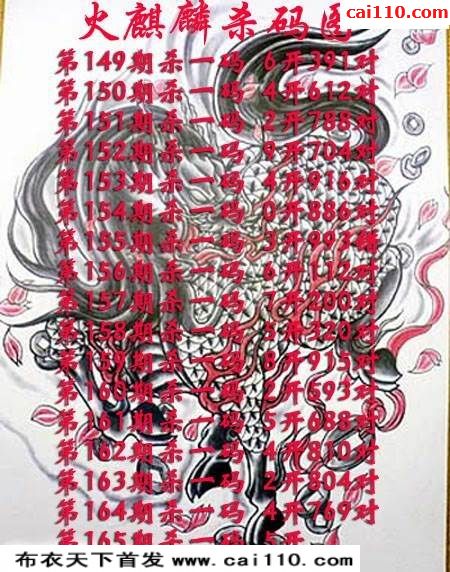 cai110.com
火麒麟杀码
第149期杀一码 6开391对
第150期杀一码 4开612对
第151期杀一码 2开788对
第152期杀一码 9开704对
第153期杀一码 4开916对
第154期杀一码 0开886对
第155期杀一码 3开993错
第156期杀一码 6开112对
第157期杀一码 7开200对
第158期杀一码 5开320对
第159期杀一码 8开915对
第160期杀一码 2开593对
第161期杀一码 5开688对
第162期杀一码 4开810对
第163期杀一码 2开804对
第164期杀一码 4开769对
第165期杀一码 5开
布衣天下首发 www.cai110.com